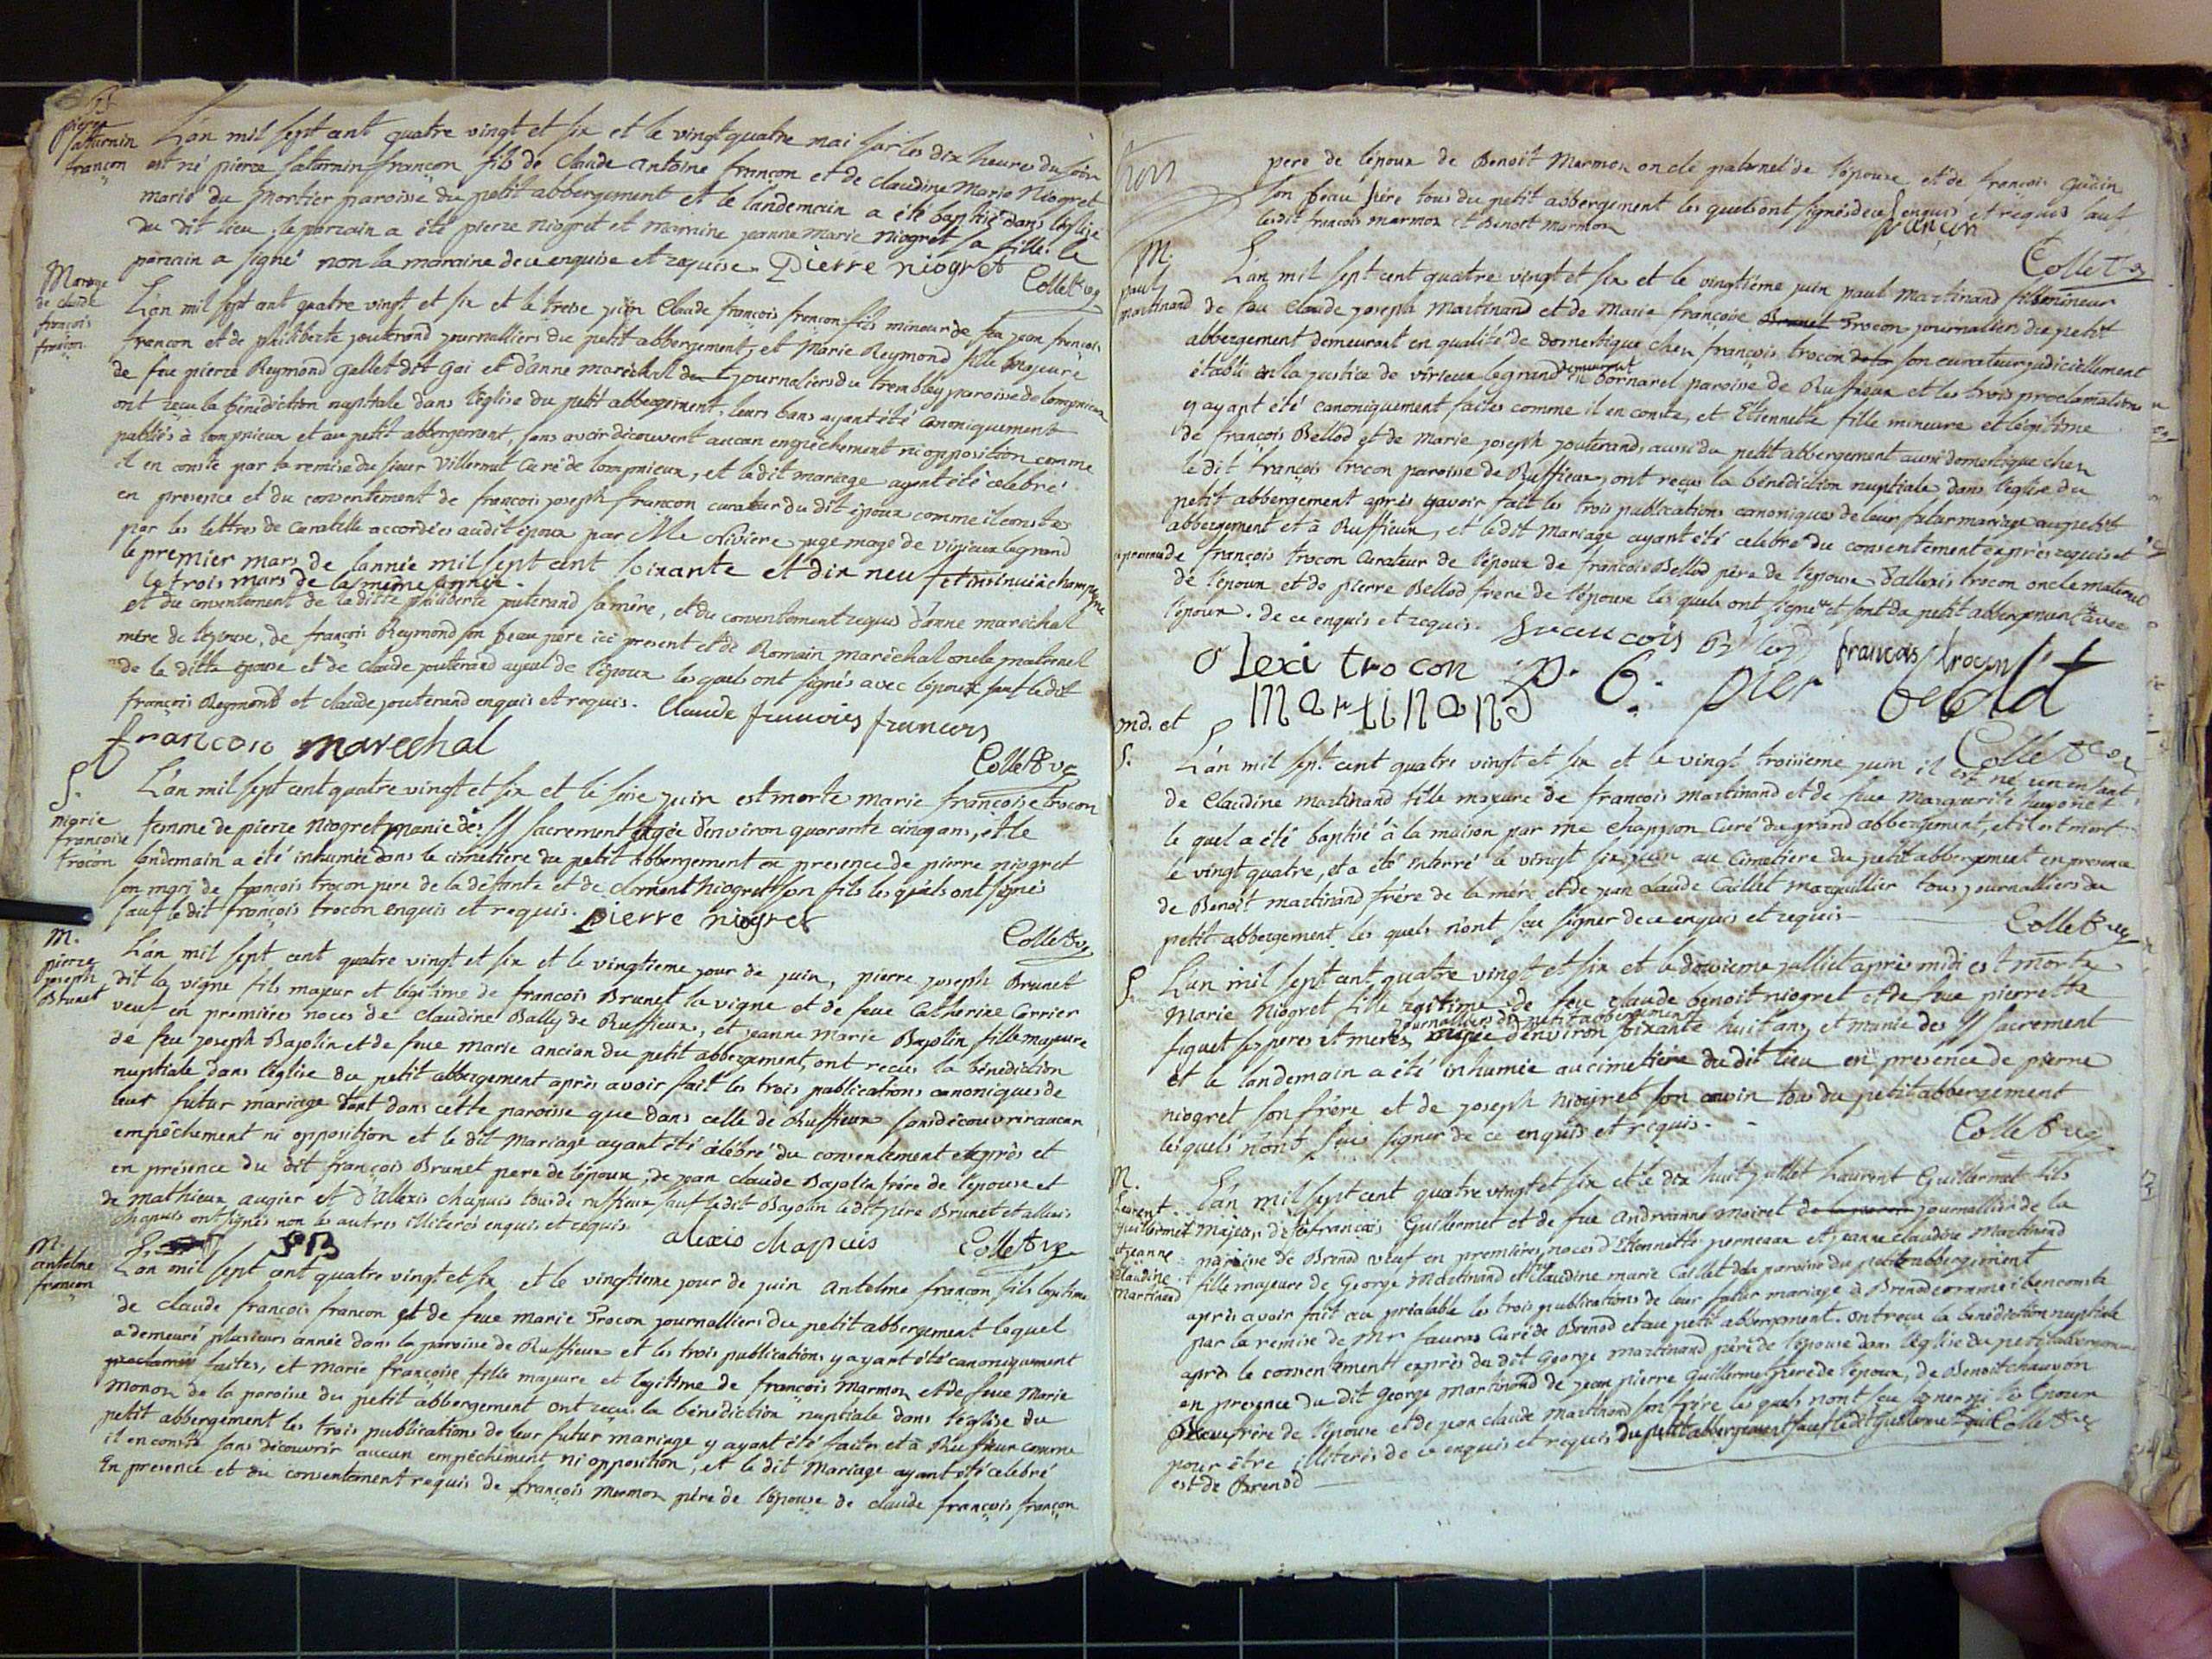 pierre
saturnin
françon
L'an mil sept cent quatre vingt et six et le vingt quatre mai sur les dix heures du soir
est né pierre saturnin françon fils de Claude antoine françon et de claudine Marie Niogret
marié du mortier paroisse du petit abbergement et le landemain a été baptisé dans l'église
du dit lieu. le parrain a été pierre niogret et marraine jeanne marie niogret sa fille. le
parrain a signé non la maraine de ce enquise et requise. Pierre niogret
Collet
Mariage
de claude
françois
françon
L'an mil sept cent quatre vingt et six et le treise juin Claude françois françon fils mineur de feu jean francois
francon et de philiberte jouterand journalliers du petit abbergement, et Marie Reymond fille majeure
de feu pierre Reymond Gallet dit Gai et d'anne maréchal journaliers du trembley paroisse de lompnieux
ont recu la bénédiction nuptiale dans l'église du petit abbergement, leurs bans ayant été canoniquement
publiés à lompnieux et au petit abbergement, sans avoir découvert aucun empêchement ni opposition comme
il en conste par la remise du sieur Villermet Curé de lompnieux, et ledit mariage ayant été célébré
en presence et du consentement de françois joseph francon curateur du dit époux comme il conste
par les lettres de Curatelle accordées audit époux par Me Rivière juge mage de virieux le grand
le premier mars de l'année mil sept cent soixante et dix neuf et insinué à champagne
le trois mars de la meme année.
et du consentement de la ditte philiberte jouterand sa mère, et du consentement requis d'anne maréchal
mère de l'épouse, de françois Reymond son beau père ici present et de Romain maréchal oncle maternel
de la ditte épouse et de claude jouterand ayeul de l'époux les quels ont signés avec l'époux sauf le dit
françois Reymond et claude jouterand enquis et requis. Claude francois francon
françois marechal
Collet
S.
marie
francoise
trocon
L'an mil sept cent quatre vingt et six et le seise juin est morte marie francoise trocon
femme de pierre niogret munie des SS sacrement agée d'environ quarante cinq ans, et le
landemain a été inhumée dans le cimetière du petit abbergement en presence de pierre niogret
son mari de françois trocon pere de la défunte et de clement niogret son fils les quels ont signés
sauf le dit françois trocon enquis et requis. pierre niogret
Collet
M.
pierre
joseph
Brunet
L'an mil sept cent quatre vingt et six et le vingtieme jour de juin, pierre joseph Brunet
dit la vigne fils majeur et légitime de francois Brunet la vigne et de feue Catherine Carrier
veuf en premières noces de claudine Bally de Ruffieux, et jeanne Marie Bajolin fille majeure
de feu joseph Bajolin et de feue marie ancian du petit abbergement, ont recus la bénédiction
nuptiale dans l'église du petit abbergement après avoir fait les trois publications canoniques de
leur futur mariage tant dans cette paroisse que dans celle de Ruffieux sans découvrir aucun
empêchement ni opposition et le dit Mariage ayant été célébré du consentement exprès et
en présence du dit françois Brunet pere de l'époux, de jean claude Bajolin frère de l'épouse et
de mathieux augier et d'Allexis chapuis tous de ruffieux sauf ledit Bajolin ledit père Brunet et allexis
chapuis ont signés non les autres illiterés enquis et requis.
PB alexis chapuis Collet
M.
antelme
francon
L'an mil sept cent quatre vingt et six et le vingtieme jour de juin antelme françon fils légitime
de claude francois francon et de feue marie Trocon journalliers du petit abbergement lequel
a demeuré plusieurs année dans la paroisse de Ruffieux et les trois publications y ayant été canoniquement
faites, et marie françoise fille majeure et legitime de françois Marmon et de feue Marie
monon de la paroisse du petit abbergement ont recus la bénédiction nuptiale dans l'église du
petit abbergement les trois publications de leur futur mariage y ayant été faites et à Ruffieux comme
il en conste sans découvrir aucun empêchement ni opposition, et le dit Mariage ayant été celebré
En presence et du consentement requis de françois marmon père de l'épouse de claude françois françon
pere de l'époux de Benoit Marmon oncle paternel de l'épouse et de françois Guain
son beau frère tous du petit abbergement les quels ont signés de ce enquis et requis sauf
lesdit françois marmon et Benoit marmon
françon
Collet
M.
paul
martinand
L'an mil sept cent quatre vingt et six et le vingtième juin paul Martinand fils mineur
de feu Claude joseph Martinand et de Marie françoise Brunet Trocon journaliers du petit
abbergement demeurant en qualité de domestique chez françois trocon son curateur judiciellement
établi en la justice de virieux le grand demeurant en bornarel paroisse de Ruffieux et les trois proclamations
y ayant été canoniquement faites comme il en conste, et Etiennette fille mineure et légitime
de françois Bellod et de Marie joseph jouterand aussi du petit abbergement aussi domestique chez
ledit françois trocon paroisse de Ruffieux, ont reçus la bénédiction nuptiale dans l'église du
petit abbergement après y avoir fait les trois publications canoniques de leur futur mariage au petit
abbergement et à Ruffieux, et ledit Mariage ayant été celebré du consentement exprès requis et
en presence de françois trocon Curateur de l'époux de francois Bellod père de l'épouse d'allexis trocon oncle maternel
de l'époux et de pierre Bellod frere de l'épouse les quels ont signé et sont du petit abbergement avec
l'époux. de ce enquis et requis.
francois trocon
alexi trocon p. b. pier belod
martinand
Collet
md. et
S.
L'an mil sept cent quatre vingt et six et le vingt troisième juin il est né un enfant
de Claudine martinand fille majeure de françois Martinand et de feue Marguerite hugonet
le quel a été baptisé à la maison par me chappon Curé du grand abbergement, et il est mort
le vingt quatre, et a été enterré le vingt six juin au Cimetière du petit abbergement en presence
de Benoit martinand frère de la mère et de jean claude Caillet marguillier tous journalliers du
petit abbergement les quels n'ont scu signer de ce enquis et requis
Collet
S.
L'an mil sept cent quatre vingt et six et le dousieme julliet après midi est morte
Marie Niogret fille légitime de feu claude benoit niogret et de feue pierrette
journalliers du petit abbergement
figuet ses peres et meres, agée d'environ soixante huit ans et munie des SS sacrement
et le landemain a été inhumée au cimetière du dit lieu en presence de pierre
niogret son frère et de joseph niogret son cousin tous du petit abbergement
lesquels n'ont scu signer de ce enquis et requis.
Collet
M.
Laurent
guillermet
et jeanne
claudine
Martinand
L'an mil sept cent quatre vingt et six et le dix huit juillet Laurent Guillermet fils
Majeur de françois Guillermet et de feue Andréanne moiret journallier de la
paroisse de Brenod veuf en premières noces d'Etiennette perneaux et jeanne claudine Martinand
fille majeure de George martinand et claudine marie Caillet de la paroisse du petit abbergement
après avoir fait au préalable les trois publications de leur futur mariage à Brenod comme il en conste
par la remise de Mr fauras Curé de Brenod et au petit abbergement. ont recus la bénédiction nuptiale
après le consentement exprès du dit George martinand père de l'épouse dans l'église du petit abbergement
en presence du dit George martinand de jean pierre Guillermet père de l'époux, de Benoit chauvon
Beaufrère de l'épouse et de jean claude Martinand son frère les quels n'ont scu signer ni les époux
pour être illiterés de ce enquis et requis du petit abbergement sauf ledit guillermet qui Collet
est de Brenod